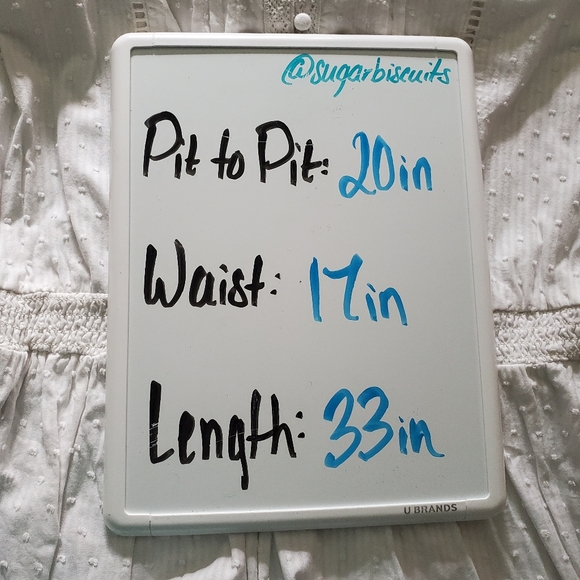 @sugarbiscuits
Pit to Pit: 20in
Waist: 17in
Length: 33in
U BRANDS